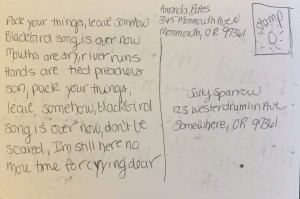 Pack your things, leave somehow
Blackbird song is over now
Mouths are dry, river runs
Hands are tied preachers
son, pack your things,
leave somehow, Blackbird
song is over now, don't be
scared, I'm still here no
more time for crying dear
Amanda Bates
345 Monmouth Ave N
Monmouth, OR 97361
Stamp
Sally Sparrow
123 Westerdrumlin Ave
Somewhere, OR 97361